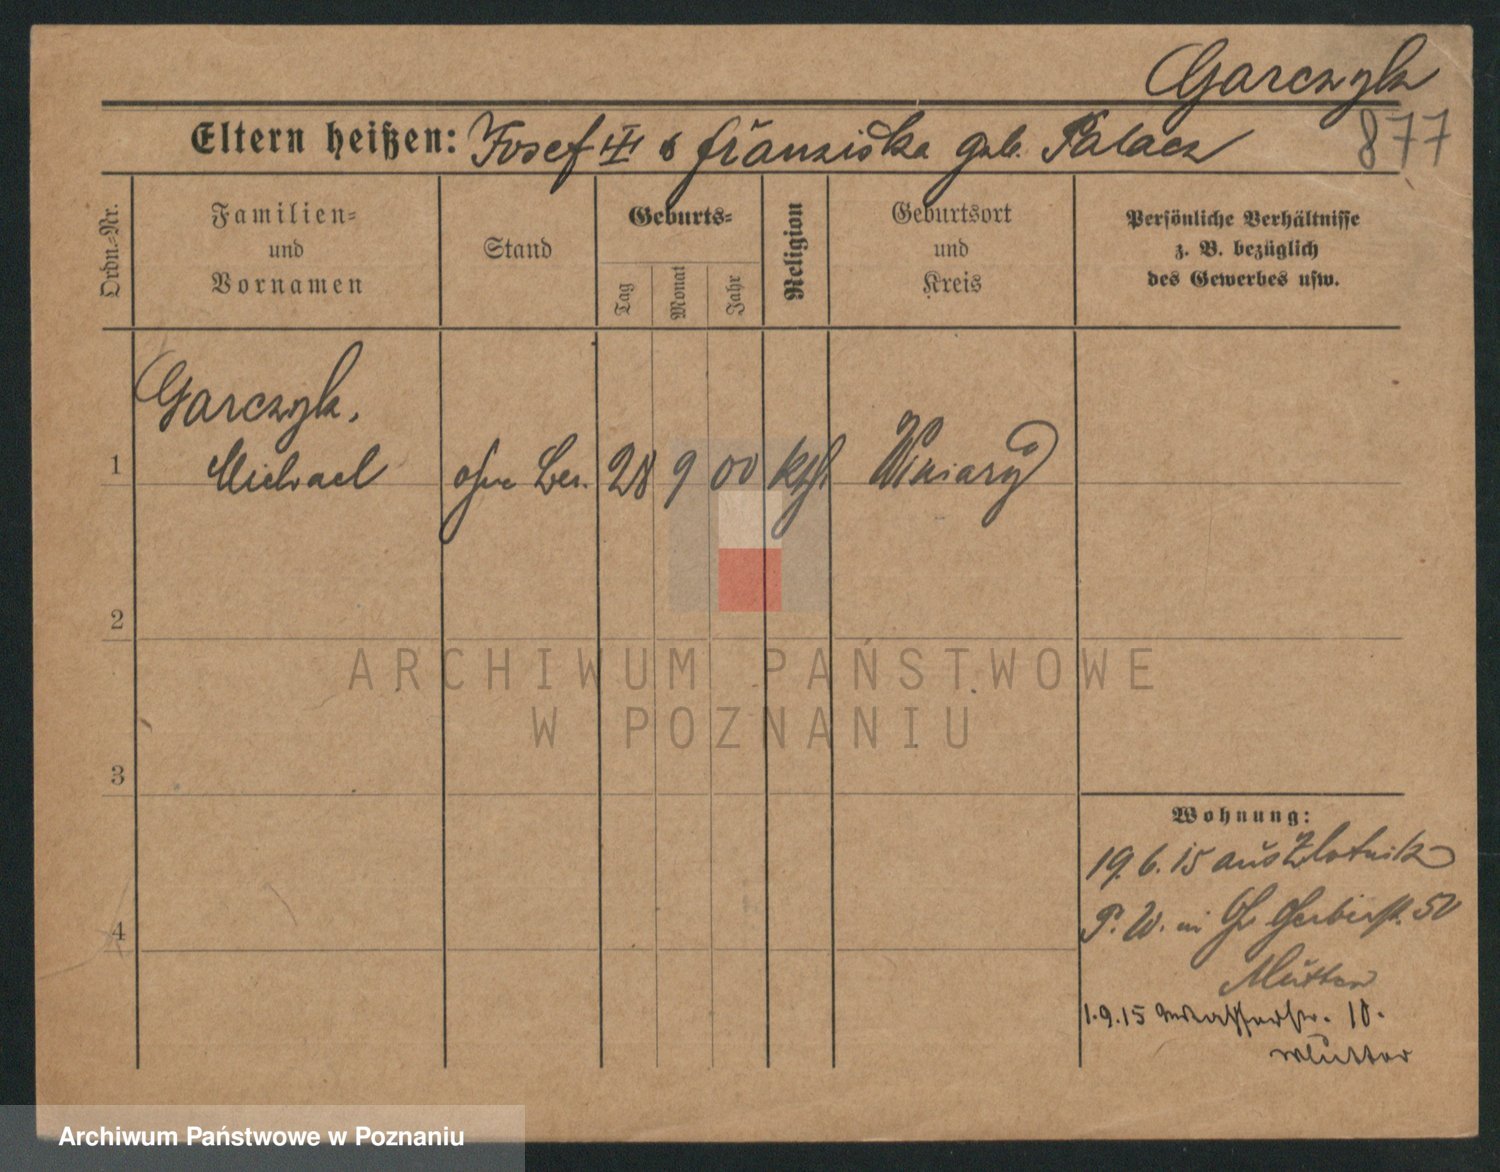 Garczyk
Eltern heißen: Josef III & Franziska geb. Palacz 877
Ordn.=Nr.
Familien=
und
Vornamen
Stand
Geburts=
Tag
Monat
Jahr
Religion
Geburtsort
und
Kreis
Persönliche Verhältnisse
z. B. bezüglich
des Gewerbes usw.
Garczyk,
1 Michael ohne Ber. 28 9 00 kth Winiary
2
3
4
Wohnung:
19.6.15 aus Zlotnik
P. W. Gr Gerberstr. 50
Mutter
1.9.15 Wasserstr. 10.
Mutter
ARCHIWUM PAŃSTWOWE
W POZNANIU
Archiwum Państwowe w Poznaniu